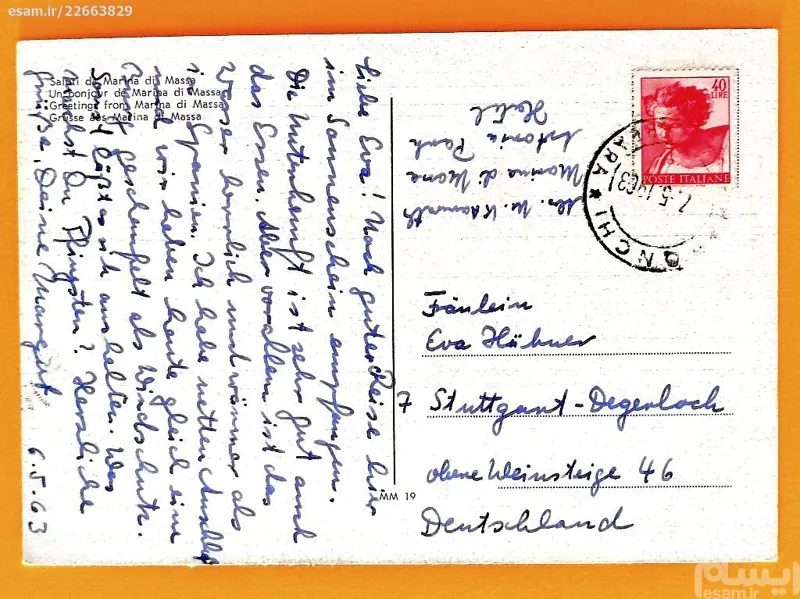 esam.ir/22663829
Saluti da Marina di Massa
Un bonjour de Marina di Massa
Greetings from Marina di Massa
Grüsse aus Marina di Massa
Liebe Eva! Nach guter Reise hier
im Sonnenschein empfangen.
Die Unterkunft ist sehr gut auch
das Essen. Aber vor allem ist das
Wasser herrlich und wärmer als
in Spanien. Ich habe netten Anschluß
und wir haben heute gleich eine
Burg geschaufelt als Windschutz.
Somit läßt es sich aushalten. Was
machst Du Pfingsten? Herzliche
Grüße, Deine Margot
6.5.63
Hotel
Astoria Park
Marina di
40
LIRE
POSTE ITALIANE
Fräulein
Eva Hübner
7 Stuttgart-Degerloch
obere Weinsteige 46
Deutschland
MM 19
ایسام
esam.ir